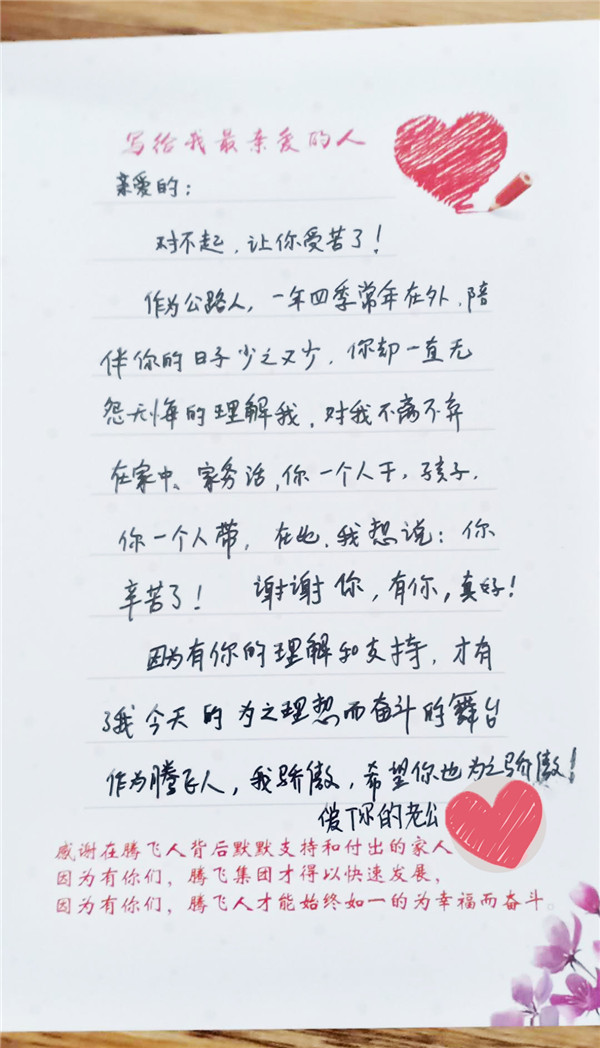 写给我最亲爱的人
亲爱的：
对不起，让你受苦了！
作为公路人，一年四季常年在外，陪
伴你的日子少之又少，你却一直无
怨无悔的理解我，对我不离不弃
在家中、家务活，你一个人干，孩子，
你一个人带，在此，我想说：你
辛苦了！ 谢谢你，有你，真好！
因为有你的理解和支持，才有
了我今天的为之理想而奋斗的舞台
作为腾飞人，我骄傲，希望你也为之骄傲！
你的老公
感谢在腾飞人背后默默支持和付出的家人
因为有你们，腾飞集团才得以快速发展，
因为有你们，腾飞人才能始终如一的为幸福而奋斗。